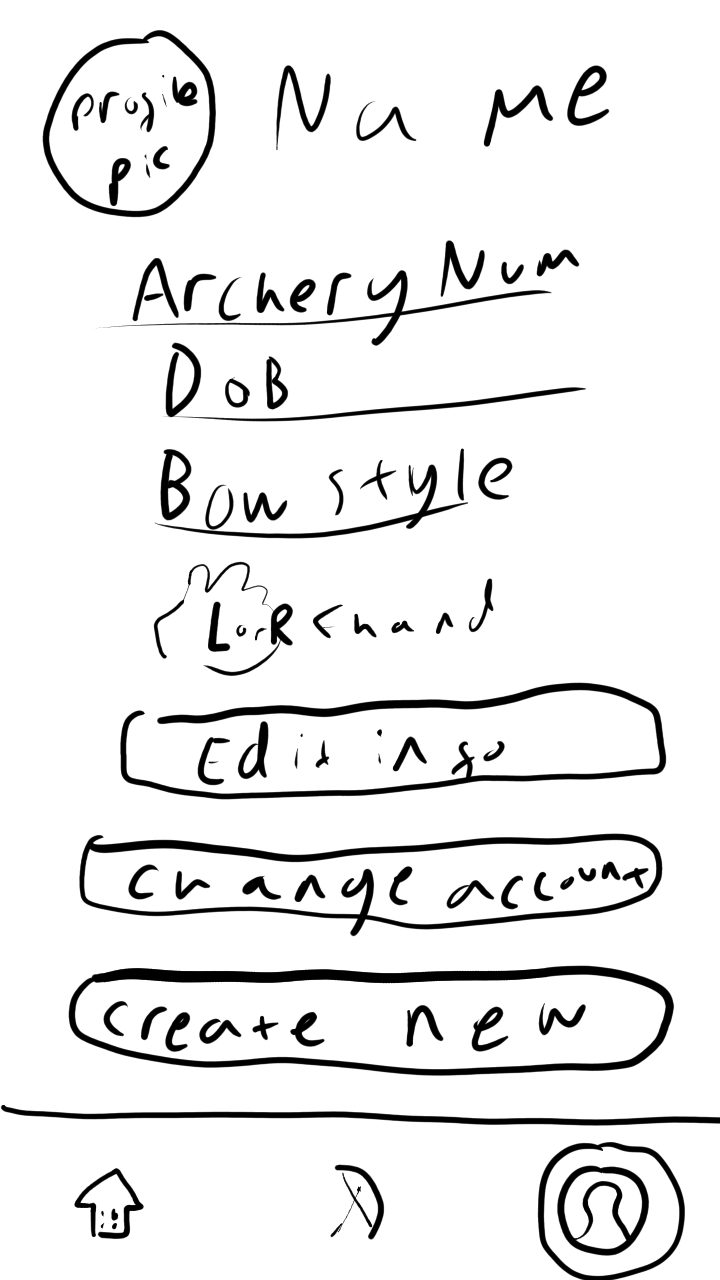 profile
pic
Name
Archery Num
DoB
Bow style
L or R hand
Edit info
change account
create new